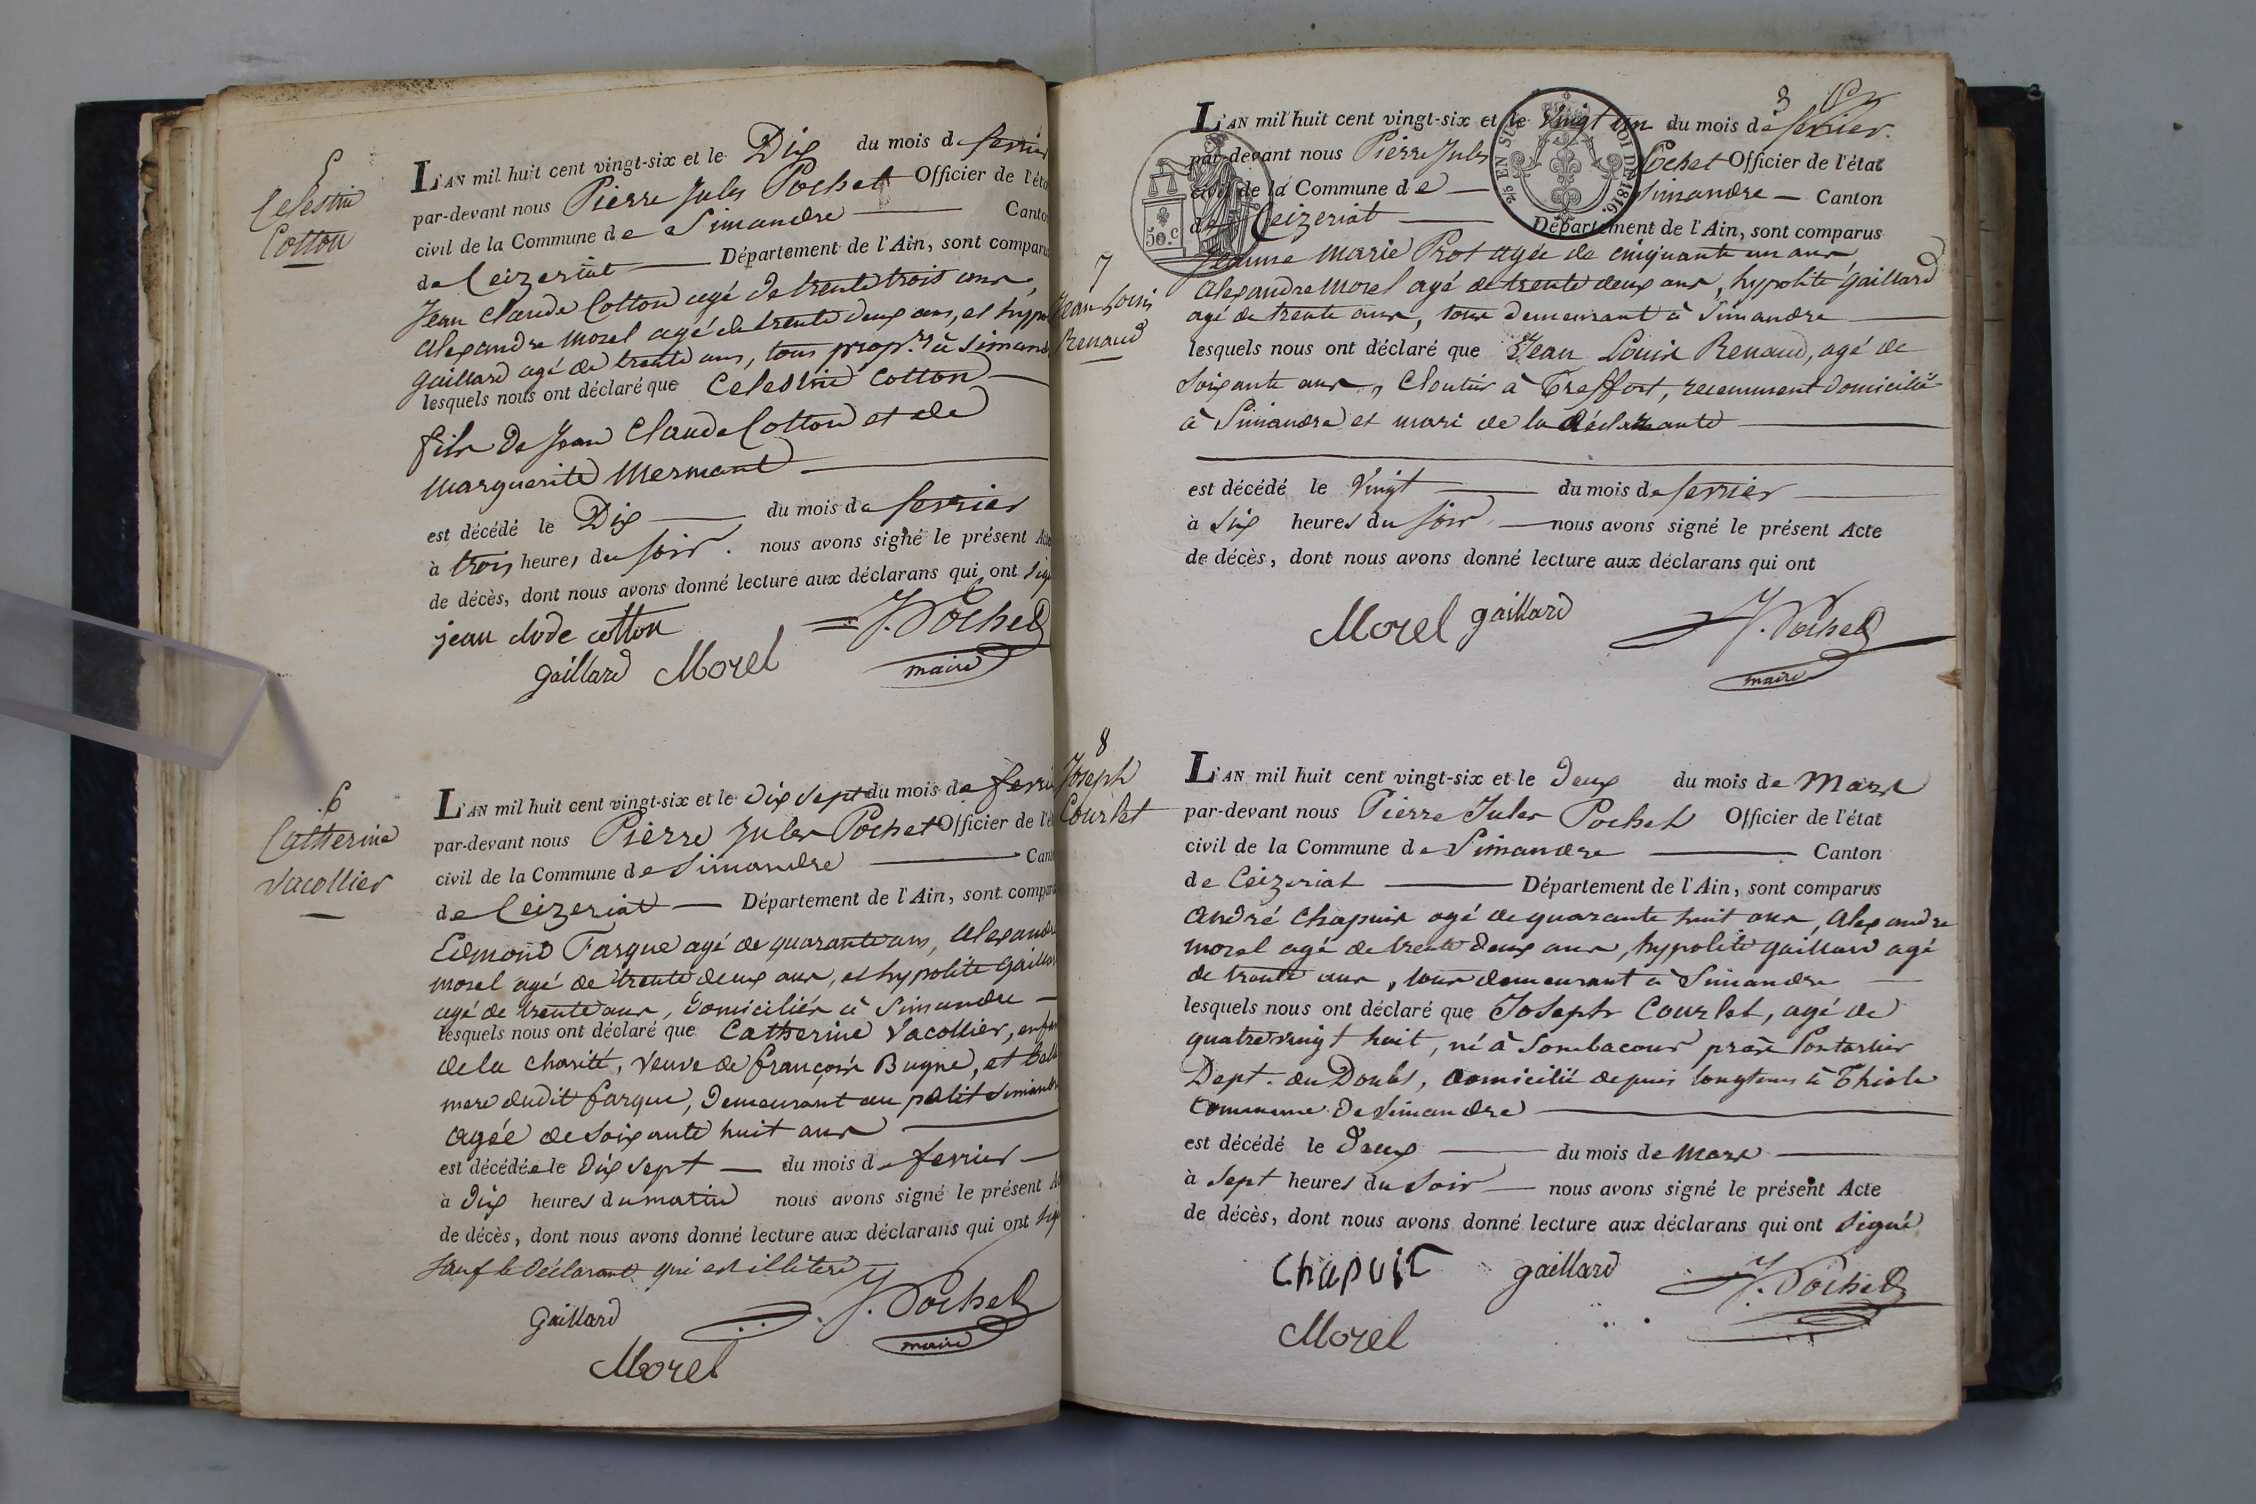 5
Celestin
Cotton
L'AN mil huit cent vingt-six et le Dix du mois de fevrier
par-devant nous Pierre Jules Pochet Officier de l'éta
civil de la Commune de Simandre Canton
de Ceizeriat Département de l'Ain, sont comparus
Jean Claude Cotton agé de trente trois ans,
alexandre Morel agé de trente deux ans, et hypo
gaillard agé de trente ans, tous prop.rs à Simand
lesquels nous ont déclaré que Celestin Cotton
fils de Jean Claude Cotton et de
Marguerite Mermant
est décédé le Dix du mois de fevrier
à trois heures du soir. nous avons signé le présent Acte
de décès, dont nous avons donné lecture aux déclarans qui ont sign
jean clode cotton
J. Pochet
gaillard Morel
maire
6
Catherine
Vacollier
L'AN mil huit cent vingt-six et le dix sept du mois de fevri
par-devant nous Pierre Jules Pochet Officier de l'é
civil de la Commune de Simandre Cant
de Ceizeriat Département de l'Ain, sont compar
Edmond Fargue agé de quarante ans, alexandre
morel agé de trente deux ans, et hypolite gaillar
agé de trente ans, domiciliés à Simandre
lesquels nous ont déclaré que Catherine Vacollier, enfan
de la charité, veuve de françois Bugne, et belle
mere dudit fargue, demeurant au petit Simandre
agée de soixante huit ans
est décédée le dix sept du mois de fevrier
à dix heures du matin nous avons signé le présent Ac
de décès, dont nous avons donné lecture aux déclarans qui ont sig
sauf le déclarant qui est illiteré
J. Pochet
gaillard
maire
Morel
3
L'AN mil huit cent vingt-six et le vingt un du mois de fevrier.
par-devant nous Pierre Jules Pochet Officier de l'état
civil de la Commune de Simandre Canton
de Ceizeriat Département de l'Ain, sont comparus
50.c
Jeanne Marie Prost agée de cinquante un ans
7
Jean Louis
Renaud
alexandre morel agé de trente deux ans, hypolite gaillard
agé de trente ans, tous demeurant à Simandre
lesquels nous ont déclaré que Jean Louis Renaud, agé de
soixante ans, Cloutier à Treffort, recemment domicilié
à Simandre et mari de la déclarante
est décédé le vingt du mois de fevrier
à six heures du soir nous avons signé le présent Acte
de décès, dont nous avons donné lecture aux déclarans qui ont
Morel gaillard J. Pochet
maire
8
Joseph
Courlet
L'AN mil huit cent vingt-six et le deux du mois de Mars
par-devant nous Pierre Jules Pochet Officier de l'état
civil de la Commune de Simandre Canton
de Ceizeriat Département de l'Ain, sont comparus
André Chapuis agé de quarante huit ans, Alexandre
morel agé de trente deux ans, hypolite gaillard agé
de trente ans, tous demeurant à Simandre
lesquels nous ont déclaré que Joseph Courlet, agé de
quatre vingt huit, né à Sombacour près Pontarlier
Dept. du Doubs, domicilié depuis longtems à Thiole
Commune de Simandre
est décédé le deux du mois de mars
à sept heures du soir nous avons signé le présent Acte
de décès, dont nous avons donné lecture aux déclarans qui ont signé
Chapuis gaillard J. Pochet
Morel